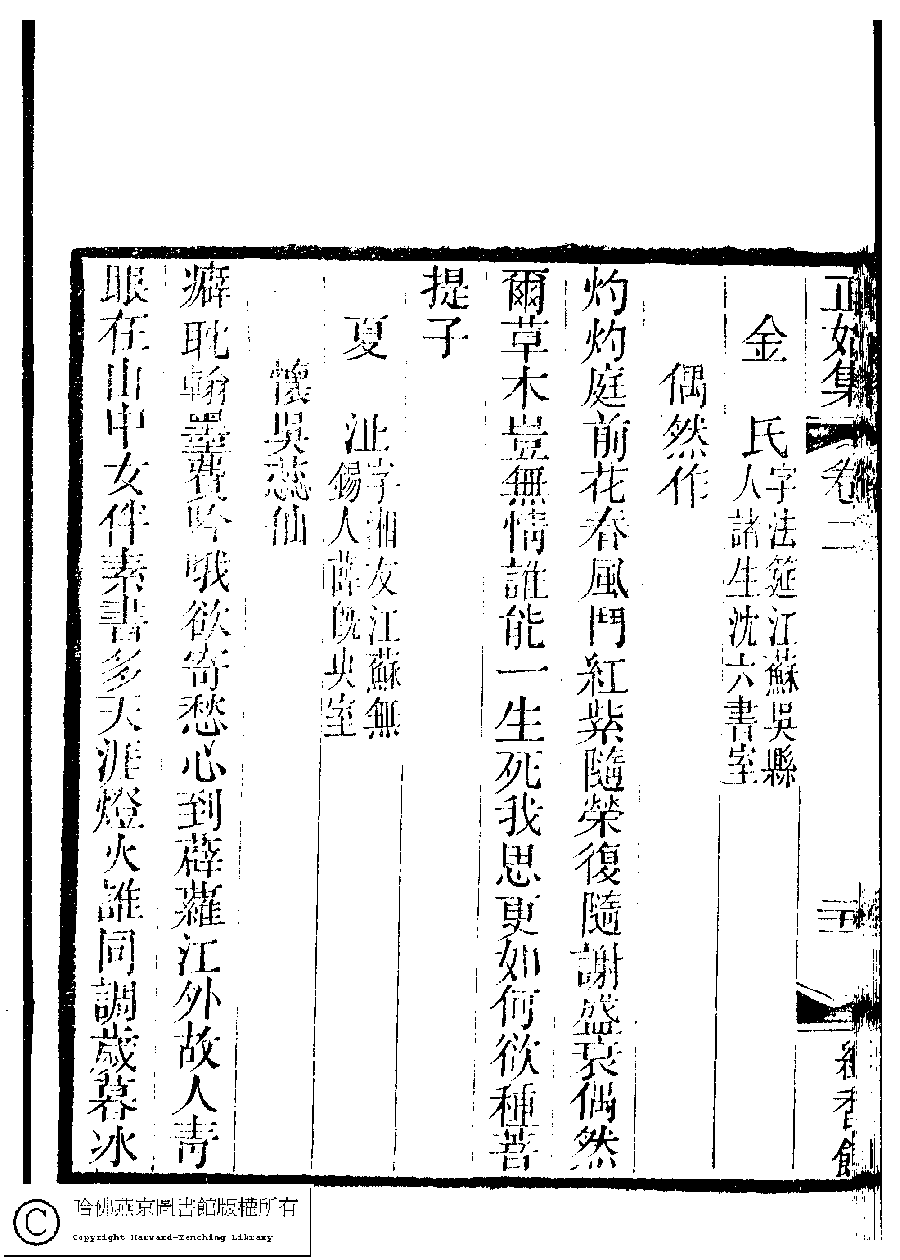 正始集 卷二 三 紅香館
金　氏字法筵江蘇吳縣
人諸生沈六書室
偶然作
灼灼庭前花春風鬥紅紫隨榮復隨謝盛衰偶然
爾草木豈無情誰能一生死我思更如何欲種菩
提子
夏　沚字湘友江蘇無
錫人薛既央室
懷吳蕊仙
癖耽翰墨費吟哦欲寄愁心到薜蘿江外故人青
眼在山中女伴素書多天涯燈火誰同調歲暮冰
哈佛燕京圖書館版權所有
Copyright Harvard-Yenching Library